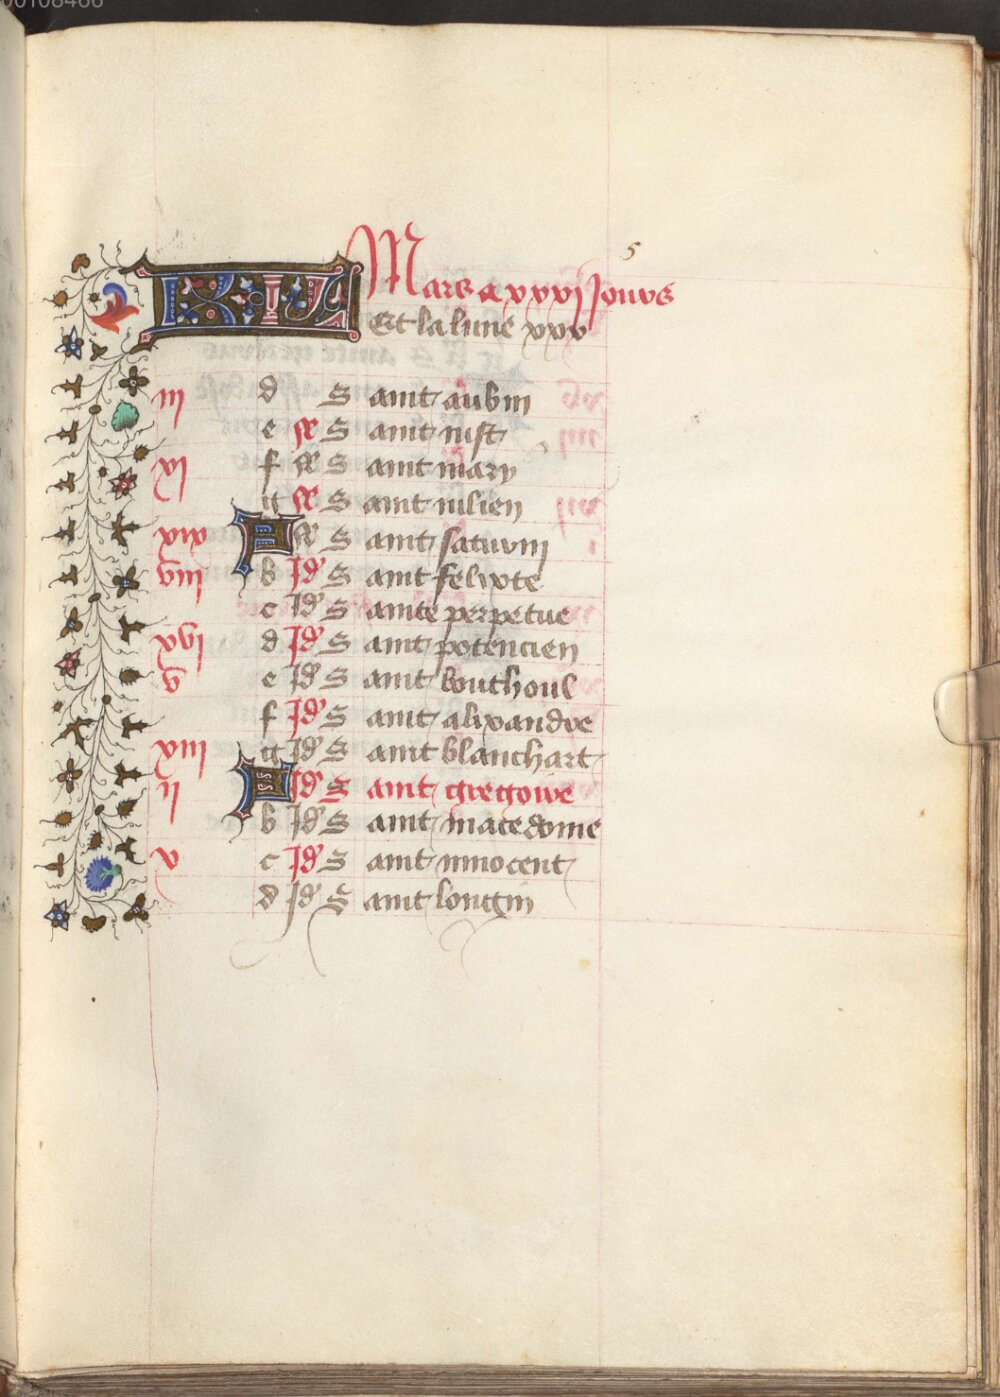 00108466
5
KL Mars a xxxi jours
Et la lune xxx
iii d Saint aubin
e Saint iust
xi f Saint mary
g Saint iulien
xix A Saint saturnin
viii b Id' Saint felixte
c Id' Sainte perpetue
xvi d Id' Saint potencien
v e Id' Saint bouthoul
f Id' Saint alixandre
xiii g Id' Saint blanchart
ii A Id' Saint gregoire
b Id' Saint macedoine
x c Id' Saint innocent
d Id' Saint longin